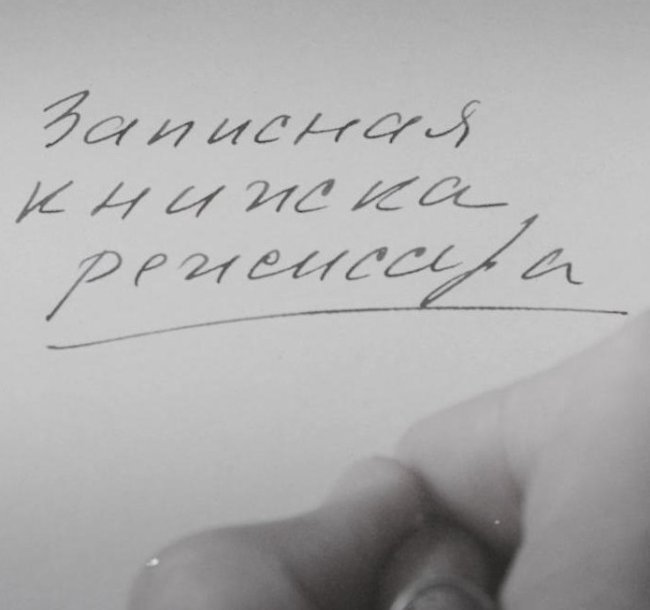 Записная
книжка
режиссера